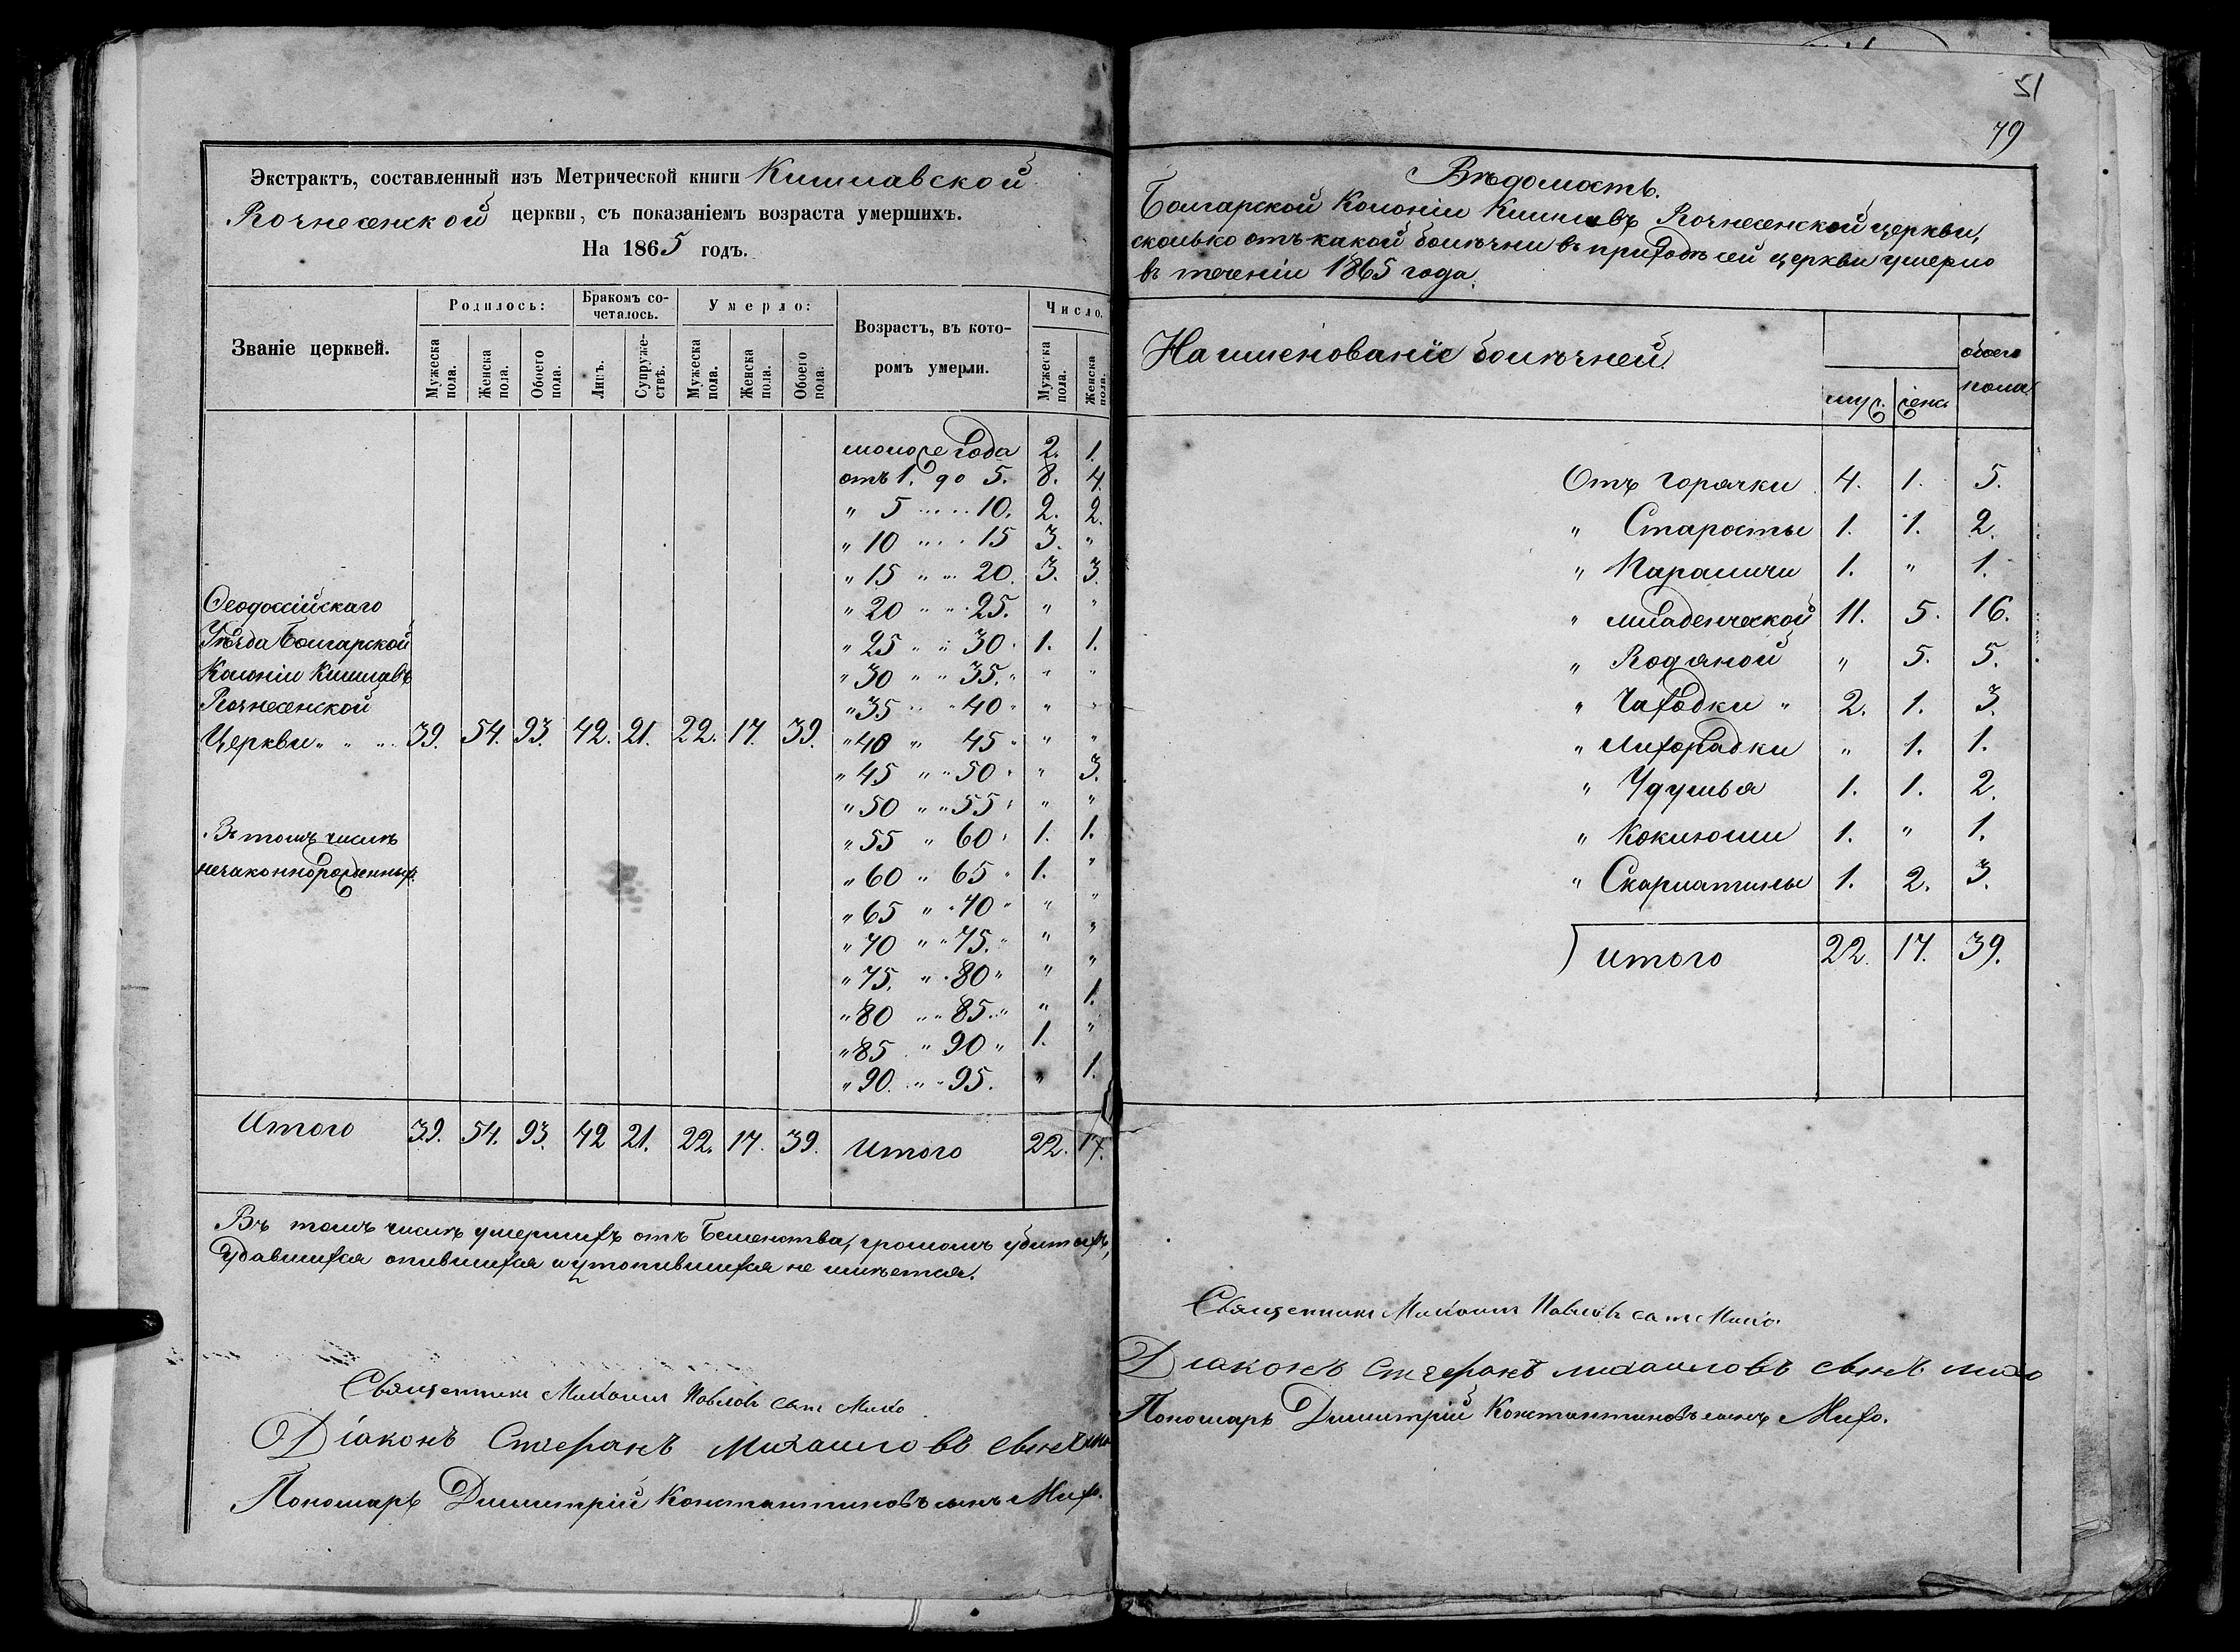 Экстрактъ, составленный изъ Метрической книги Кишлавской
Вознесенской церкви, съ показаніемъ возраста умершихъ.
На 1865 годъ.
Званіе церквей.
Родилось:
Бракомъ со-
четалось.
Умерло:
Возрастъ, въ кото-
ромъ умерли.
Число.
Мужеска пола.
Женска пола.
Обоего пола.
Лицъ.
Супруже-
ствъ.
Мужеска пола.
Женска пола.
Обоего пола.
Мужеска пола.
Женска пола.
моложе года 2. 1.
отъ 1. до 5. 8. 4.
" 5 .... 10. 2. 2.
" 10 " .. 15 3. "
" 15 " " 20. 3. 3.
" 20 " " 25. " "
" 25 " " 30 1. 1.
" 30 " " 35. " "
" 35 " " 40 " "
" 40 " 45 " "
" 45 " " 50 " 3.
" 50 " " 55 " "
" 55 " 60 1. 1.
" 60 " 65 1. "
" 65 " " 70 " "
" 70 " " 75. " "
" 75. " 80 " "
" 80 " " 85. " 1.
" 85 " 90 1. "
" 90. " " 95. " 1.
Ѳеодоссійскаго
Уѣзда Болгарской
Колоніи Кишлавъ
Вознесенской
Церкви " " " 39. 54. 93. 42. 21. 22. 17. 39.
Въ томъ числѣ
незаконнорожденныхъ.
Итого 39. 54. 93. 42 21. 22. 17. 39. Итого 22. 17.
Въ томъ числѣ умершихъ отъ Бешенства, громомъ убитыхъ,
удавшихся опившихся и утопившихся не имѣется.
Священникъ Михаилъ Павловъ
Діаконъ Стефанъ Михаиловъ сынъ
Пономарь Димитрій Константиновъ сынъ Михо.
51
79
Вѣдомость.
Болгарской Колоніи Кишлавъ Вознесенской церкви,
сколько отъ какой болѣзни въ приходѣ сей церкви умерло
въ теченіи 1865 года.
Наименованіе болѣзней.
муж. женс. обоего
пола
Отъ горячки 4. 1. 5.
" Старости 1. 1. 2.
" 1. " 1.
" младенческой 11. 5. 16.
" Водяной " 5. 5.
" Чахотки " 2. 1. 3.
" Лихорадки " 1. 1.
" Удушья 1. 1. 2.
" Коклюши 1. " 1.
" Скарлатины 1. 2. 3.
Итого 22. 17. 39.
Священникъ Михаилъ Павловъ
Діаконъ Стефанъ михаиловъ сынъ михо
Пономарь Димитрій Константиновъ сынъ Михо.